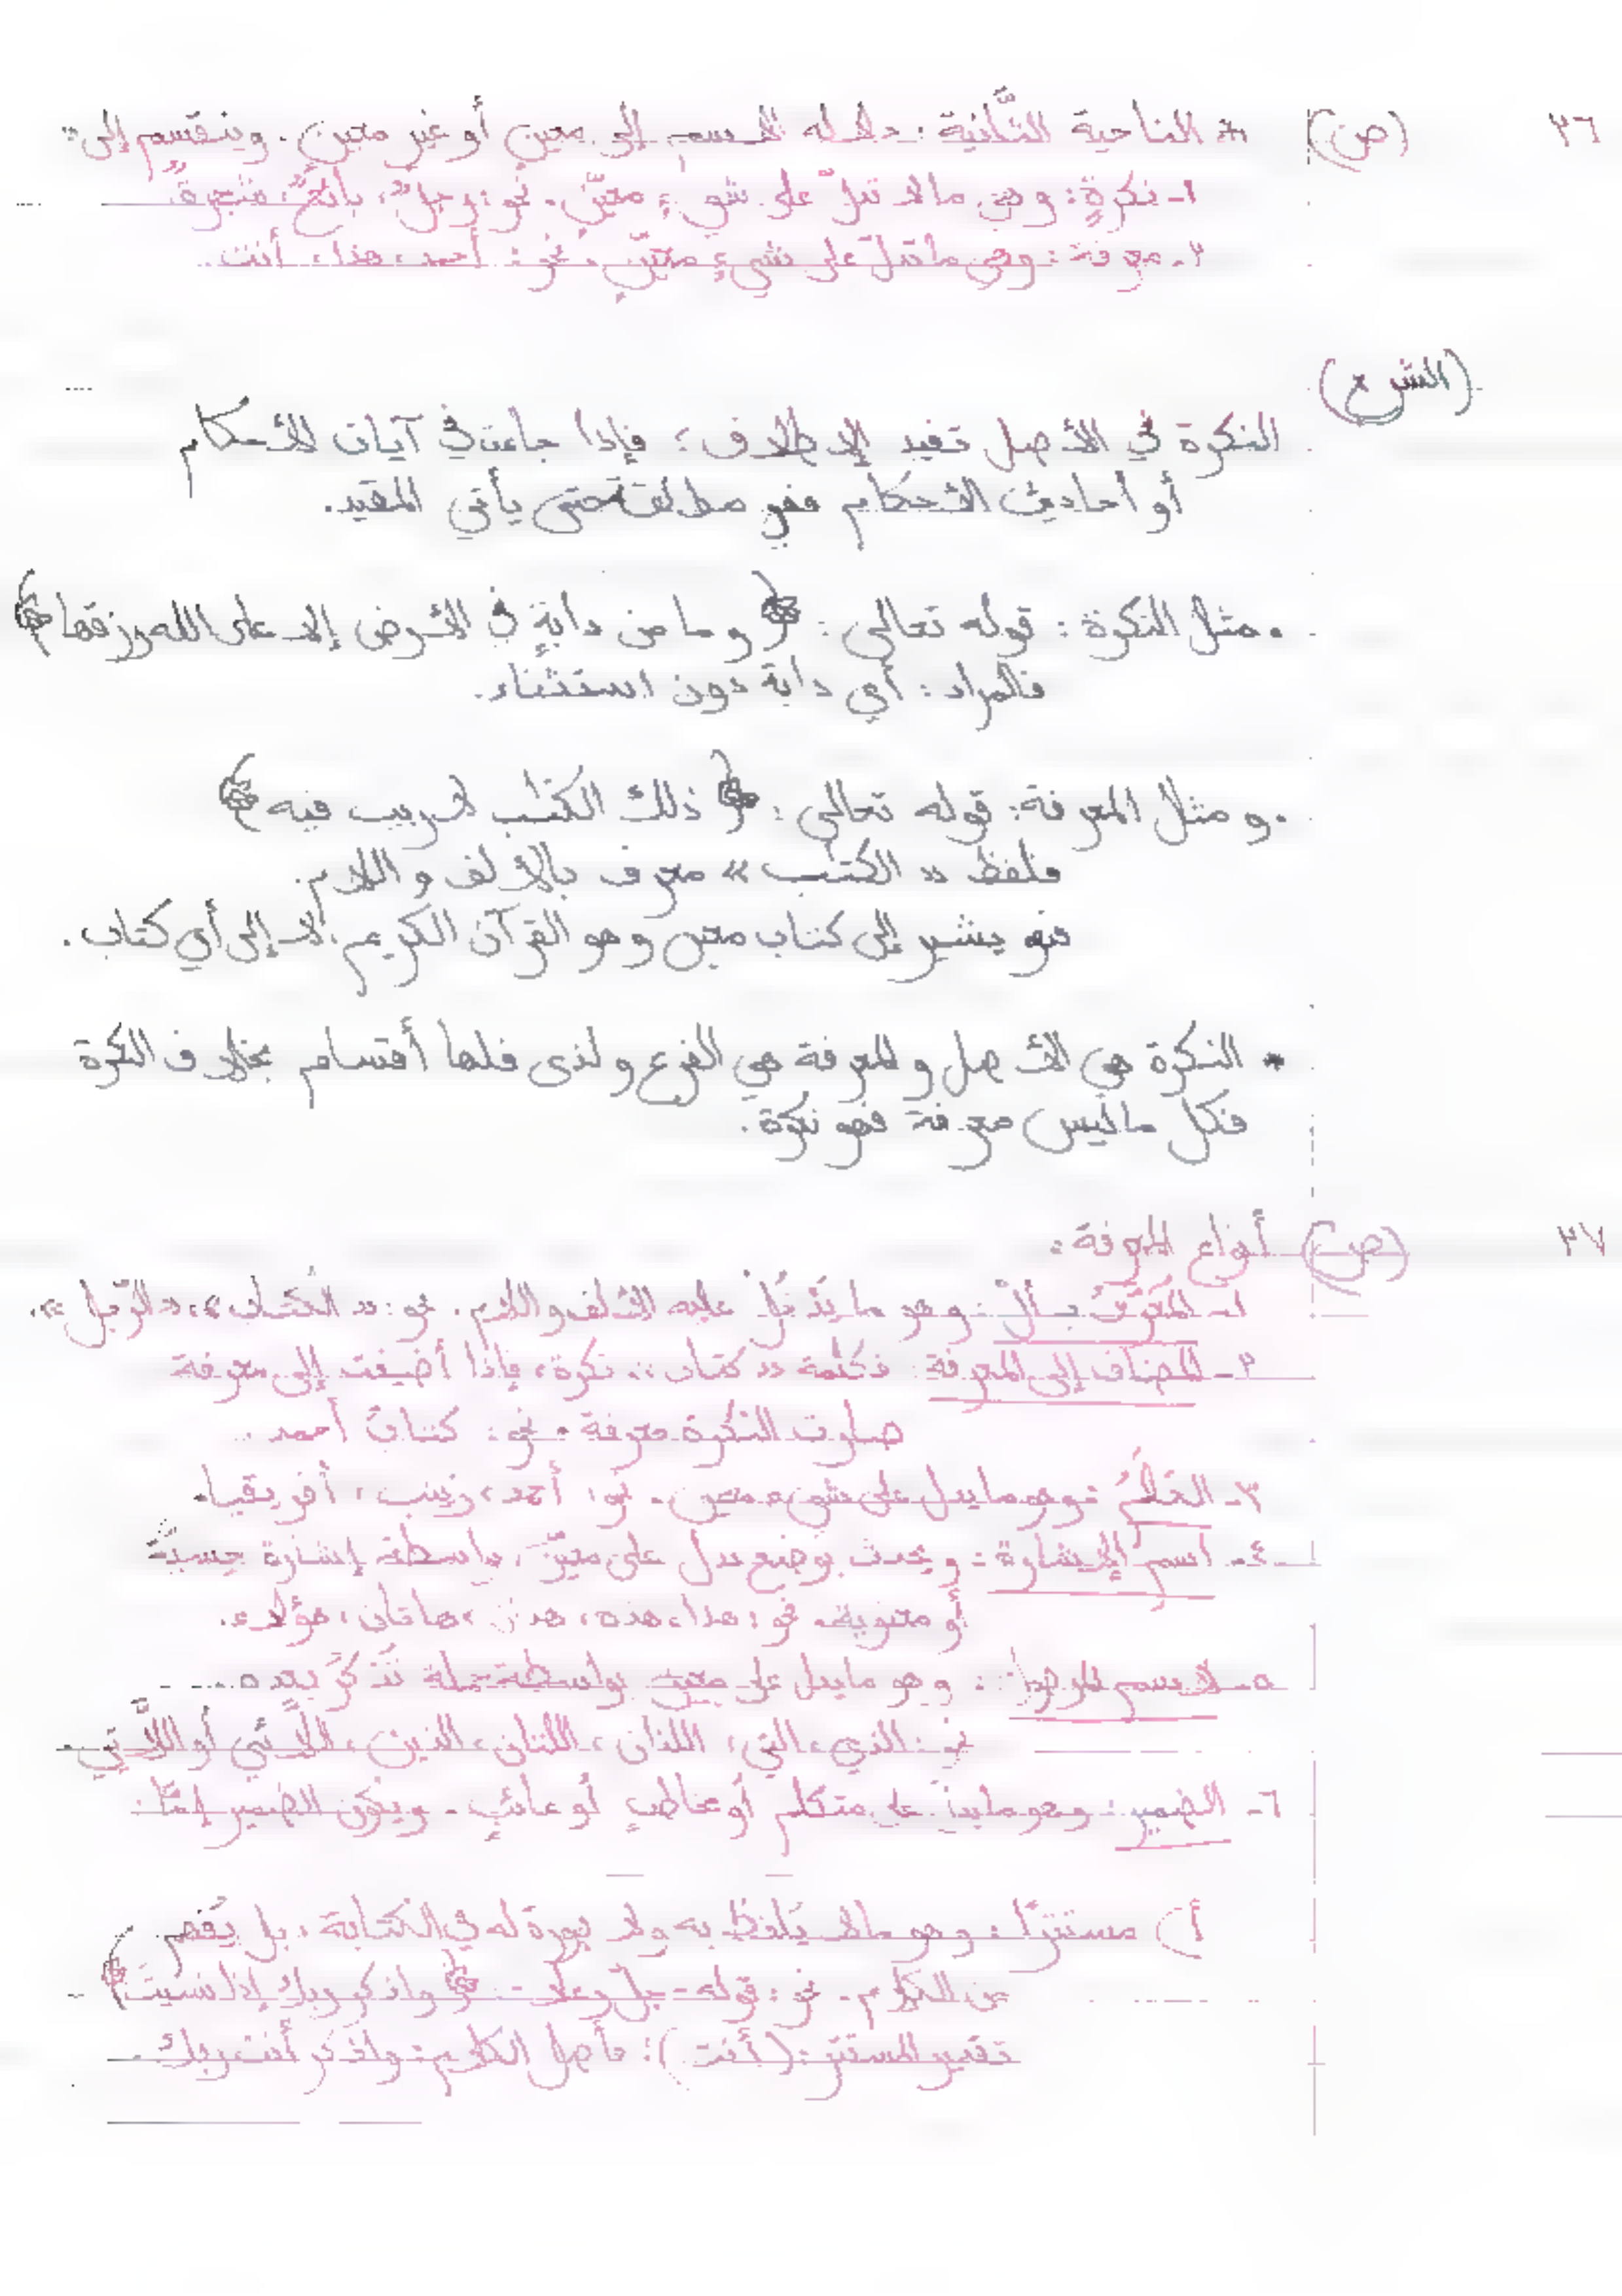 ٣٦ (ص) * الناحية الثَّانية: دلالة الاسم إلى معين أو غير معين. وينقسم إلى:
١- نكرةٍ: وهي ما لا تدلّ على شيءٍ معيّن. نحو: رجلٌ، بائعٌ، شجرةٌ.
٢- معرفة: وهي ما تدلّ على شيءٍ معيّنٍ. نحو: أحمد، هذا، أنت.
(الشرح)
النكرة في الأصل تفيد الإطلاق؛ فإذا جاءت في آيات الأحكام
أو أحاديث الأحكام فهي مطلقة حتى يأتي المقيد.
• مثل النكرة: قوله تعالى: ﴿وما من دابةٍ في الأرض إلا على الله رزقها﴾
فالمراد: أي دابة دون استثناء.
• و مثل المعرفة: قوله تعالى: ﴿ذلك الكتٰب لا ريب فيه﴾
فلفظ «الكتٰب» معرف بالألف واللام.
فهو يشير إلى كتاب معين وهو القرآن الكريم، لا إلى أي كتاب.
* النكرة هي الأصل والمعرفة هي الفرع ولذى فلها أقسام بخلاف النكرة
فكل ما ليس معرفة فهو نكرة.
٣٧ (ص) أنواع المعرفة:
١- المُعَرَّفُ بـ ألْ: وهو ما يَدْخُلُ عليه الألف واللام. نحو: «الكتاب»، «الرّجل».
٢- المضاف إلى المعرفة: فكلمة «كتاب» نكرة، فإذا أضيفت إلى معرفة
صارت النكرة معرفة. نحو: كتابُ أحمد.
٣- العَلَمُ: وهو ما يدل على شيء معين. نحو: أحمد، زينب، أفريقيا.
٤- اسم الإشارة: و يحدث بوضع يدل على معيّن، بواسطة إشارة حسيةٍ
أو معنوية. نحو: هذا، هذه، هذان، هاتان، هؤلاء.
٥- الاسم الموصول: وهو ما يدل على معين بواسطة جملة تُذكَرُ بعده.
نحو: الذي، التي، اللذان، اللتان، الذين، اللَّائي أو اللَّاتِي.
٦- الضمير: وهو ما يدل على متكلم أو مخاطبٍ أو غائبٍ. ويكون الضمير إمَّا:
أ) مستترًا: وهو ما لا يُلفظُ به ولا صورة له في الكتابة، بل يُفهم
من الكلام. نحو: قوله - جل وعلا -: ﴿واذكر ربك إذا نسيتَ﴾
تقدير المستتر: (أنت)؛ فأصل الكلام: واذكر أنت ربك.